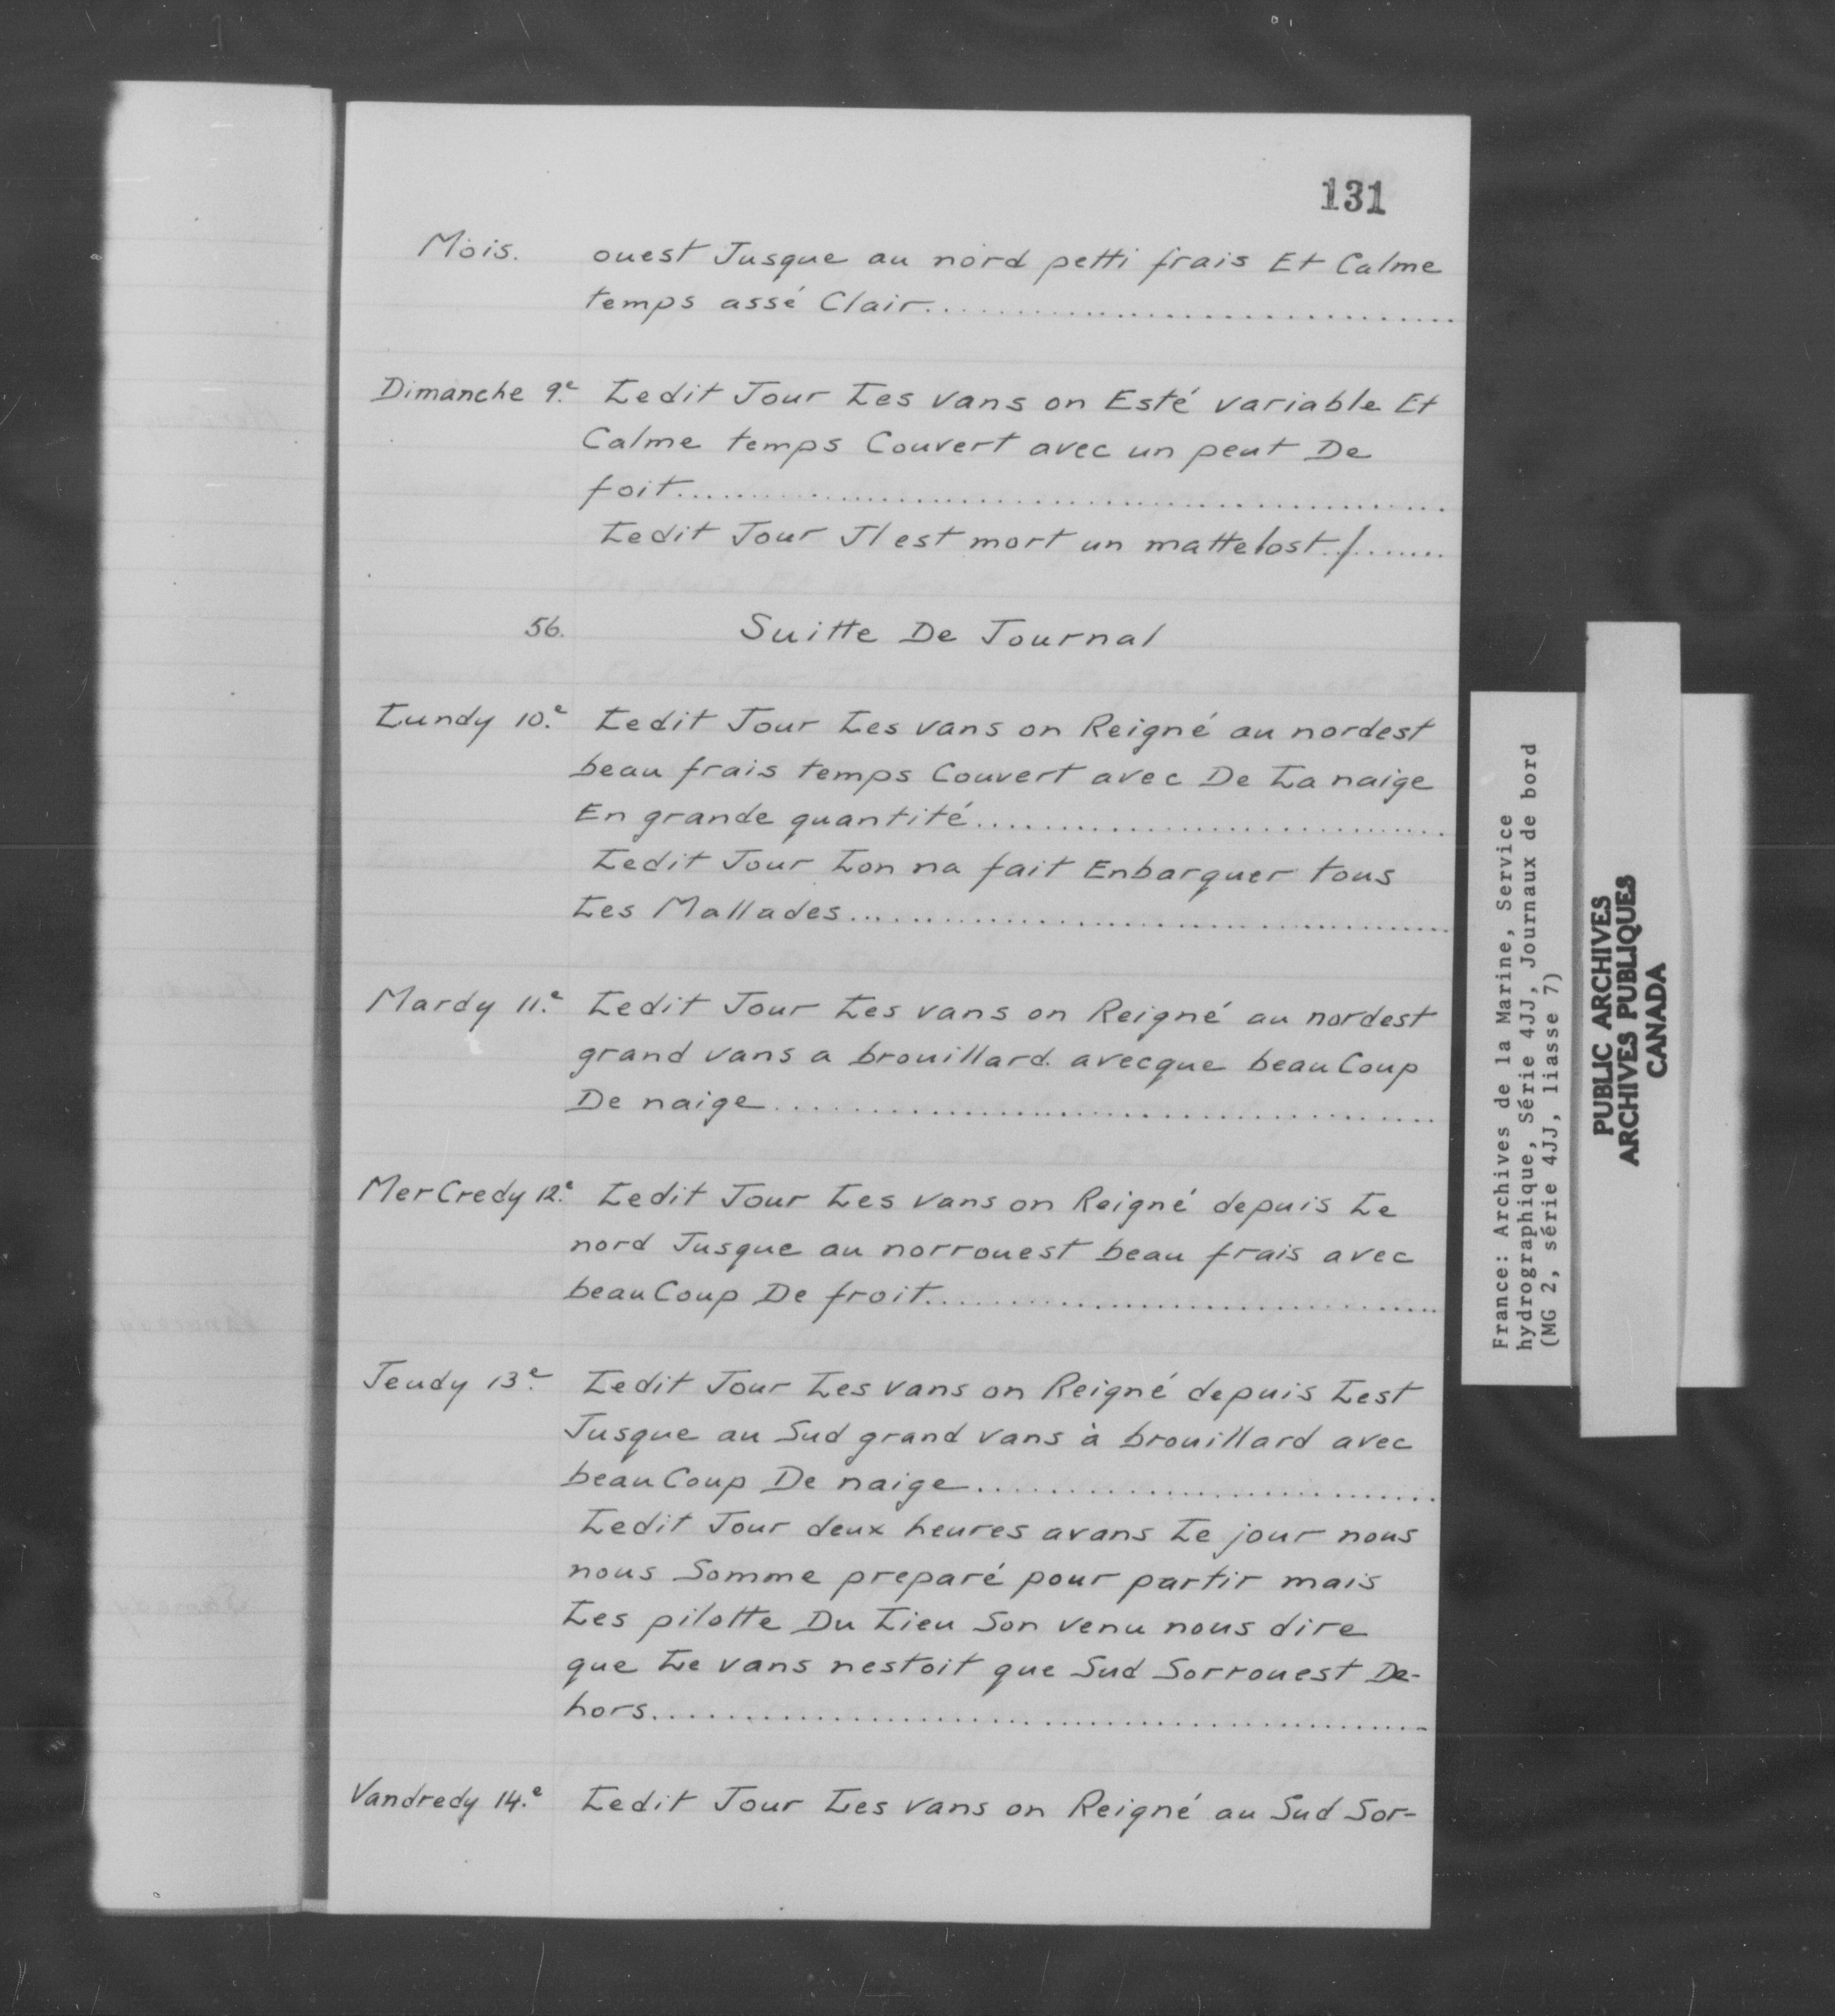 131
Mois. ouest Jusque au nord petti frais Et Calme
temps assé Clair................................
Dimanche 9.e Ledit Jour Les vans on Esté variable Et
Calme temps Couvert avec un peut De
foit................................
Ledit Jour Jl est mort un mattelost./........
56. Suitte De Journal
Lundy 10.e Ledit Jour Les vans on Reigné au nordest
beau frais temps Couvert avec De La naige
En grande quantité................................
Ledit Jour Lon na fait Enbarquer tous
Les Mallades................................
Mardy 11.e Ledit Jour Les vans on Reigné au nordest
grand vans a brouillard avecque beauCoup
De naige................................
MerCredy 12.e Ledit Jour Les vans on Reigné depuis Le
nord Jusque au norrouest beau frais avec
beauCoup De froit................................
Jeudy 13.e Ledit Jour Les vans on Reigné depuis Lest
Jusque au Sud grand vans à brouillard avec
beauCoup De naige................................
Ledit Jour deux heures avans Le jour nous
nous Somme preparé pour partir mais
Les pilotte Du Lieu Son venu nous dire
que Le vans nestoit que Sud Sorrouest De-
hors................................
Vandredy 14.e Ledit Jour Les vans on Reigné au Sud Sor-
France: Archives de la Marine, Service
hydrographique, Série 4JJ, Journaux de bord
(MG 2, série 4JJ, liasse 7)
PUBLIC ARCHIVES
ARCHIVES PUBLIQUES
CANADA